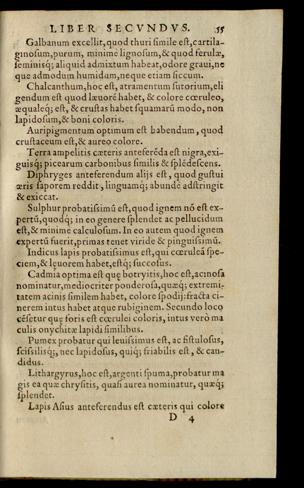 LIBER SECVNDVS. 55
Galbanum excellit, quod thuri simile est, cartila-
ginosum, purum, minimè lignosum, & quod ferulæ,
seminisq; aliquid admixtum habeat, odore graui, ne
que admodum humidum, neque etiam siccum.
Chalcanthum, hoc est, atramentum sutorium, eli
gendum est quod læuorē habet, & colore cœruleo,
æqualeq; est, & crustas habet squamarū modo, non
lapidosum, & boni coloris.
Auripigmentum optimum est habendum, quod
crustaceum est, & aureo colore.
Terra ampelitis cæteris anteferēda est nigra, exi-
guisq; picearum carbonibus similis & splēdescens.
Diphryges anteferendum alijs est, quod gustui
æris saporem reddit, linguamq; abundè adstringit
& exiccat.
Sulphur probatissimū est, quod ignem nō est ex-
pertū, quodq; in eo genere splendet ac pellucidum
est, & minime calculosum. In eo autem quod ignem
expertū fuerit, primas tenet viride & pinguissimū.
Indicus lapis probatissimus est, qui cœruleā spe-
ciem, & luorem habet, estq; succosus.
Cadmia optima est quę botryitis, hoc est, acinosa
nominatur, mediocriter ponderosa, quæq; extremi-
tatem acinis similem habet, colore spodij: fracta ci-
nerem intus habet atque rubiginem. Secundo loco
cēsetur quę foris est cœrulei coloris, intus verò ma
culis onychitæ lapidi similibus.
Pumex probatur qui leuissimus est, ac fistulosus,
scissilisq;, nec lapidosus, quiq; friabilis est, & can-
didus.
Lithargyrus, hoc est, argenti spuma, probatur ma
gis ea quæ chrysitis, quasi aurea nominatur, quæq;
splendet.
Lapis Asius anteferendus est cæteris qui colore
D 4